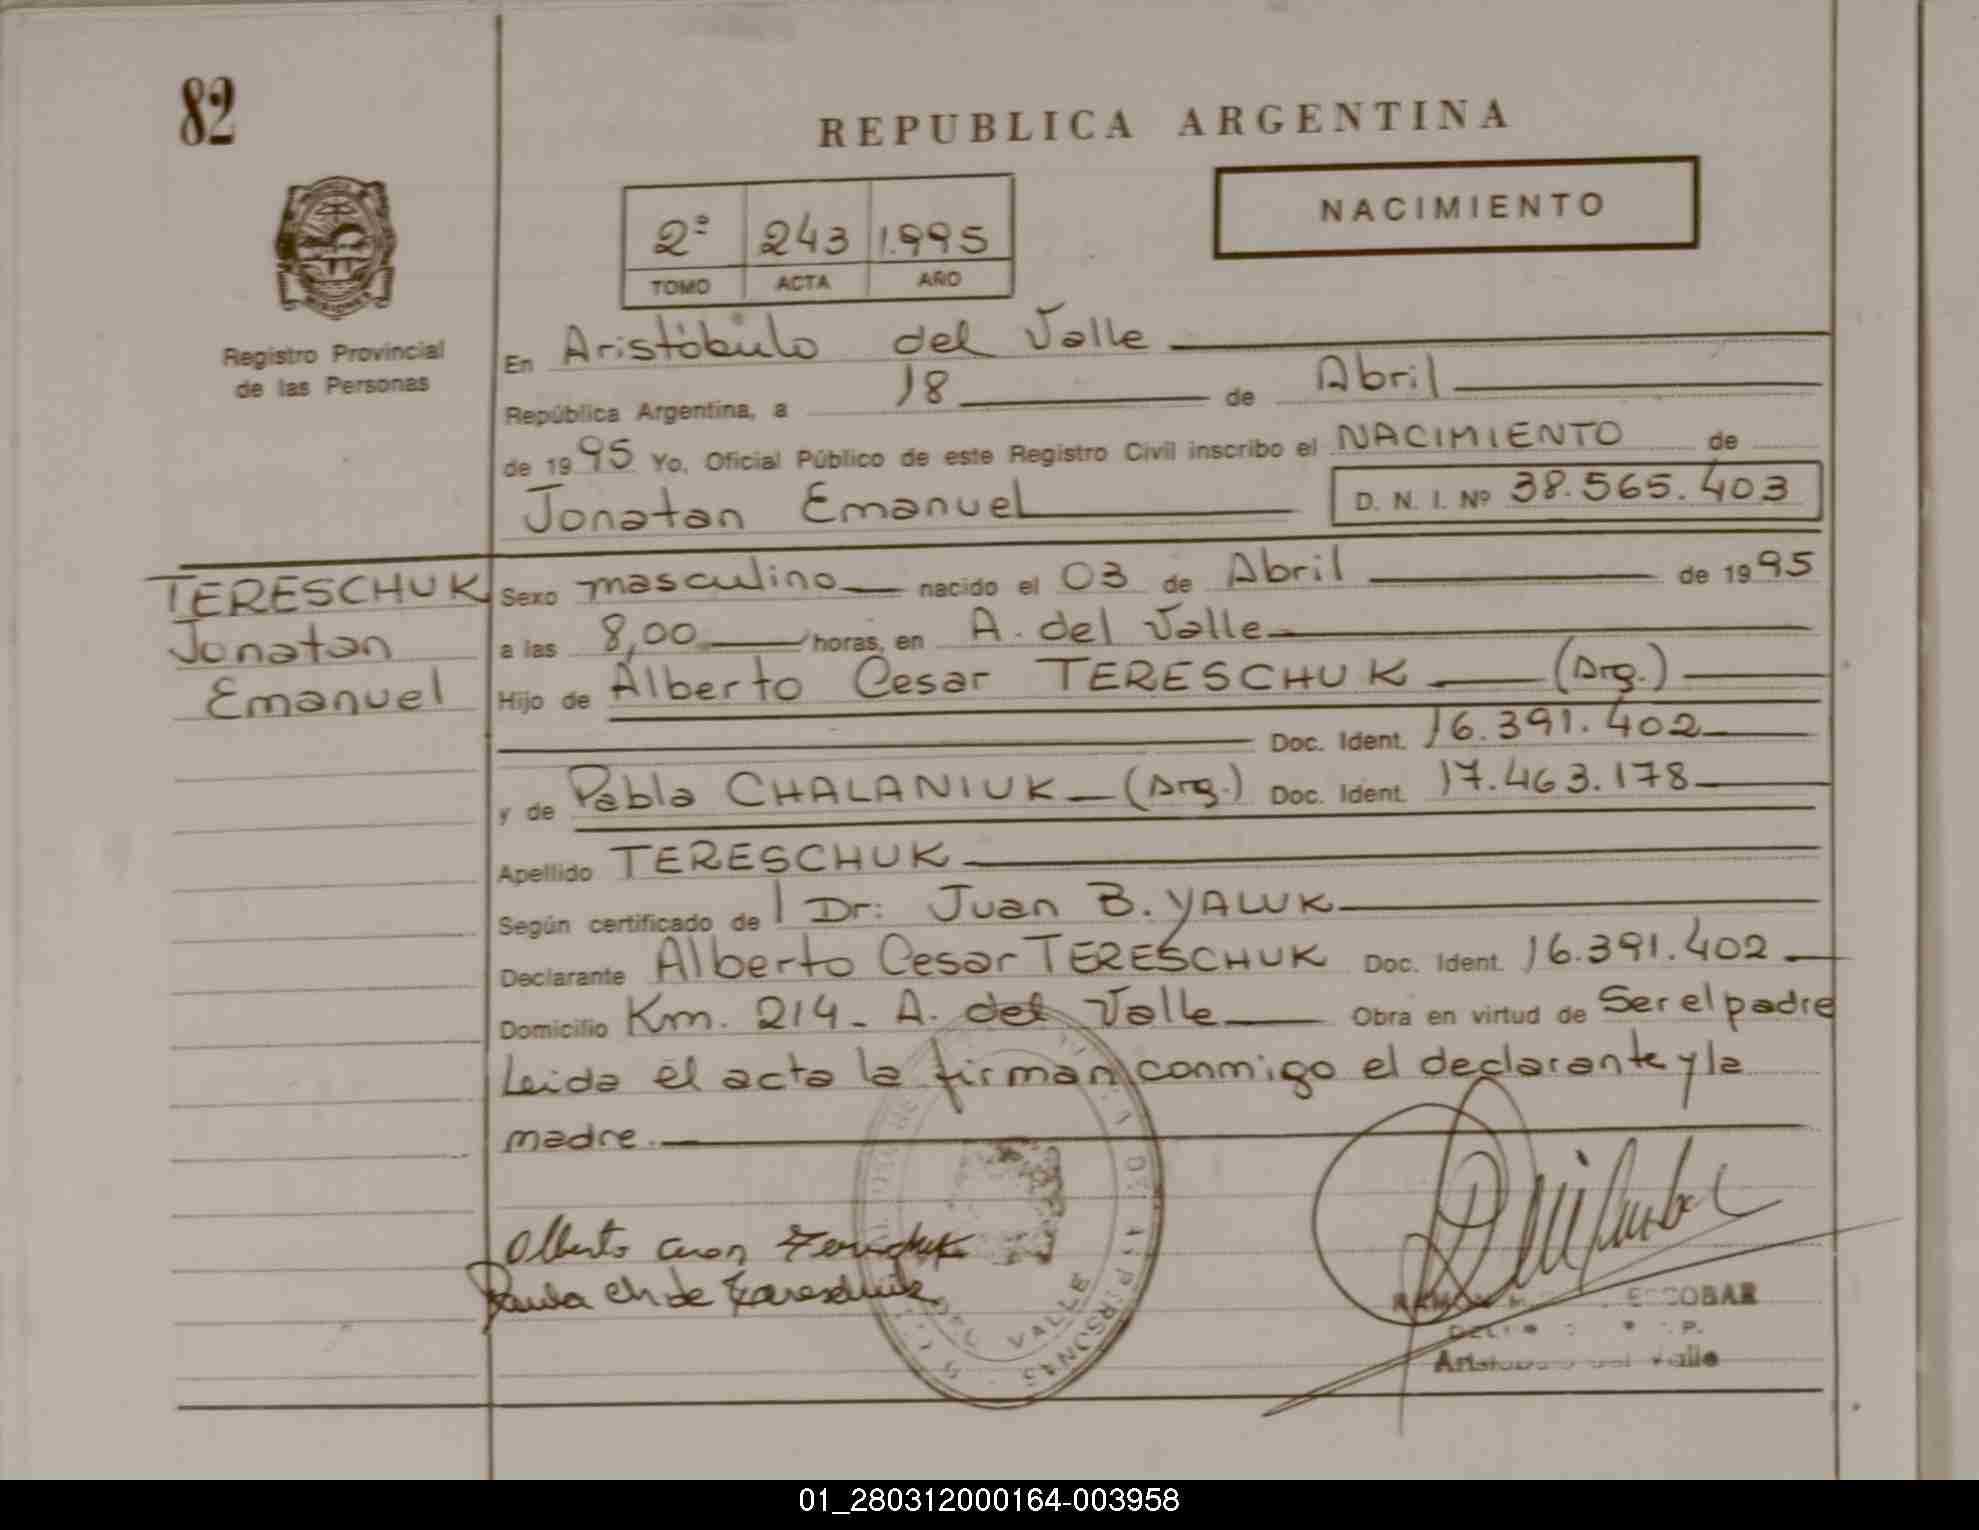 82
REPUBLICA ARGENTINA
NACIMIENTO
2º 243 1.995
TOMO ACTA AÑO
Registro Provincial
de las Personas
En Aristóbulo del Valle
República Argentina, a 18 de Abril
de 1995 Yo, Oficial Público de este Registro Civil inscribo el NACIMIENTO de
Jonatan Emanuel D. N. I. Nº 38.565.403
TERESCHUK
Jonatan
Emanuel
Sexo masculino nacido el 03 de Abril de 1995
a las 8,00 horas, en A. del Valle
Hijo de Alberto Cesar TERESCHUK (Arg.)
Doc. Ident. 16.391.402
y de Pabla CHALANIUK (Arg.) Doc. Ident. 17.463.178
Apellido TERESCHUK
Según certificado de Dr: Juan B. YALUK
Declarante Alberto Cesar TERESCHUK Doc. Ident. 16.391.402
Domicilio Km. 214 - A. del Valle Obra en virtud de Ser el padre
Leida el acta la firman conmigo el declarante y la
madre.
ESCOBAR
DEL VALLE
PERSONAS
01_280312000164-003958